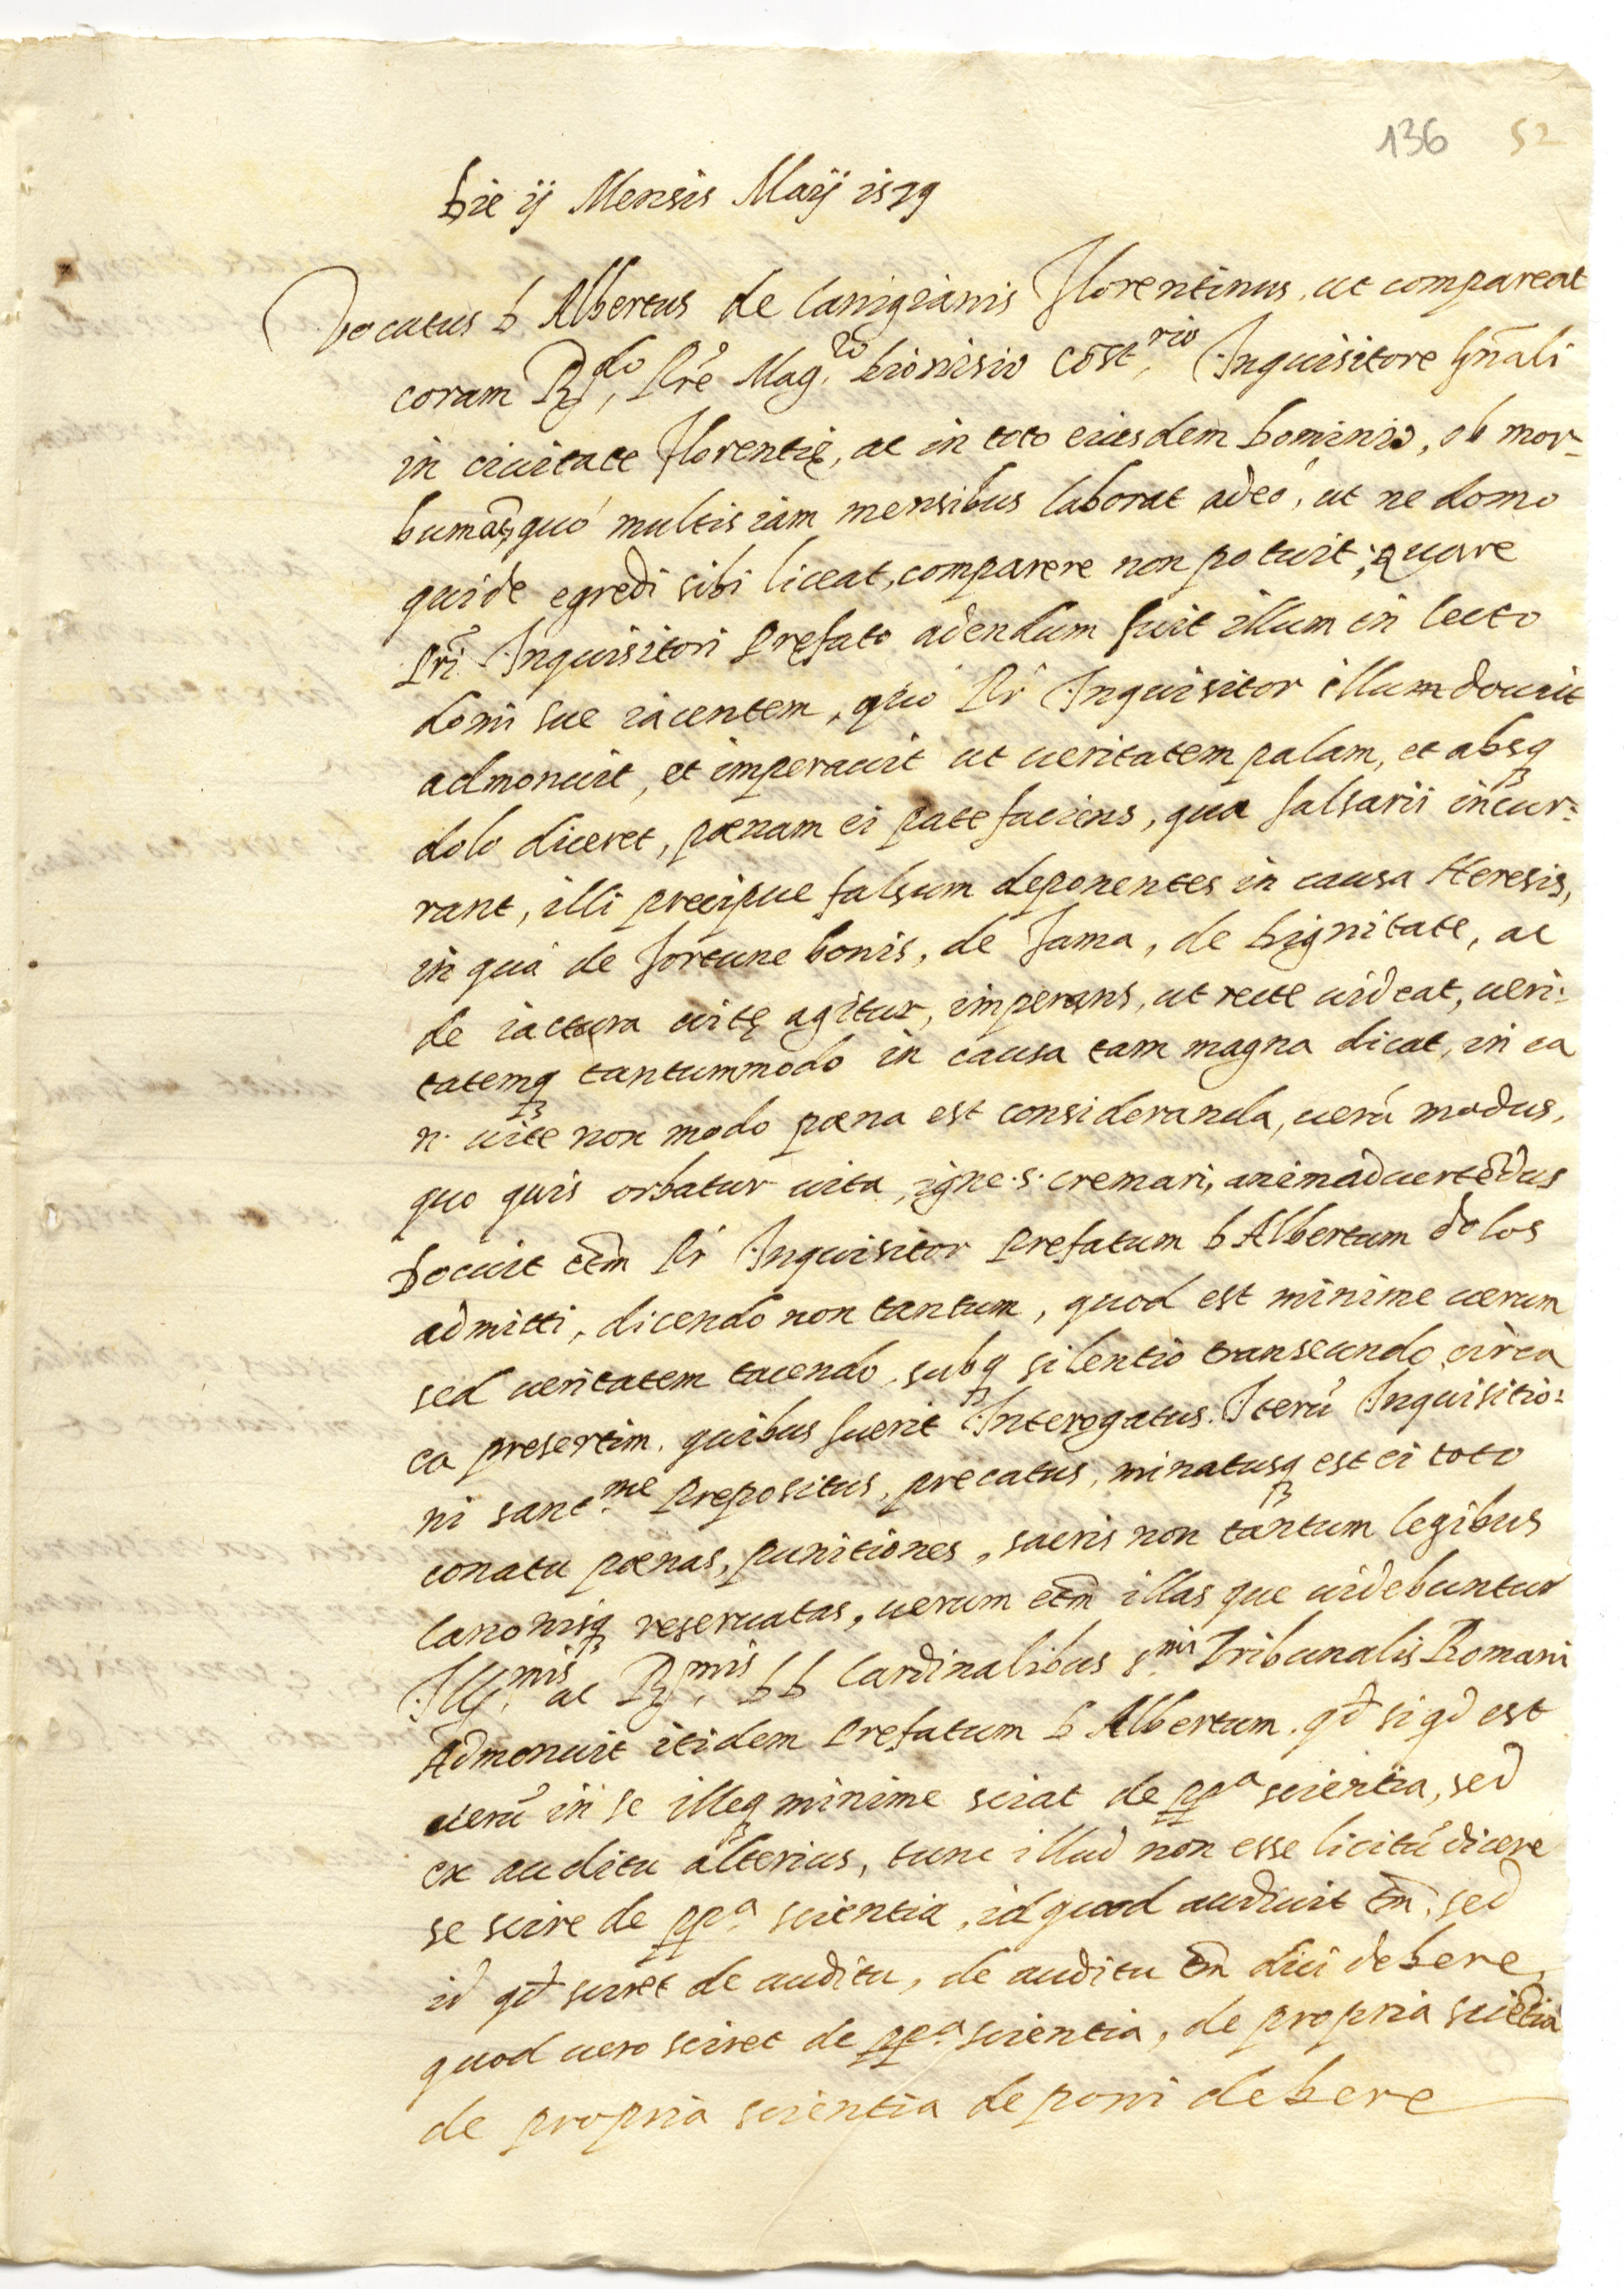 136 52
Die ij Mensis Maij 1579
Vocatus D Albertus de Canigianis Florentinus, ut compareat
coram R.do Pře Mag.ro Dionisio Cōst.rio Inquisitore gn̄ali
in ciuitate Florentię, ac in toto eiusdem Dominio, ob mor-
bum quó multis iam mensibus laborat adeó, ut ne domo
quidē egredi sibi liceat, comparere non potuit; quare
Přī Inquisitori Pręfato adendum fuit illum in lecto
domi sue iacentem, quó Pr̄ Inquisitor illum docuit
admonuit, et imperauit ut ueritatem palam, et absq3
dolo diceret, pœnam ei patefaciens, qua falsarii incur=
rant, illi precipue falsum deponentes in causa Heresis,
in quá de fortune bonis, de fama, de Dignitate, ac
de iactura uitę agitur, imperans, ut recte uideat, ueri=
tatemq3 tantummodo in causa tam magna dicat, in ea
n. uite non modo pœna est consideranda, uerū modus,
quo quis orbatur uita, igne .s. cremari, animaduertēdus
Docuit etm̄ Pr̄ Inquisitor Prefatum D Albertum dolos
admitti, dicendo non tantum, quod est minime uerum
sed ueritatem tacendo, subq3 silentio transeundo circa
ea presertim, quibus fuerit Interogatus. Iterū Inquisitio=
ni sanct.me Prepositus, precatus, minatusq3 est ei toto
conatu pœnas, punitiones, sacris non tantum legibus
Canonisq3 reseruatas, uerum etm̄ illas que uidebuntur
Ill.mis ac R.mis DD Cardinalibus S.mi Tribunalis Romani
Admonuit itidem Prefatum D Albertum. qd̄ si qd̄ est
uerū in se illeq3 minime sciat de pp.a scientia, sed
ex auditu alterius, tunc illud non esse licitū dicere
se scire de pp.a scientia, id quod audiuit tm̄, sed
id qd̄ sciret de auditu, de auditu tm̄ dici debere,
quod uero sciret de pp.a scientia, de propria sciētia
de propria scientia deponi debere